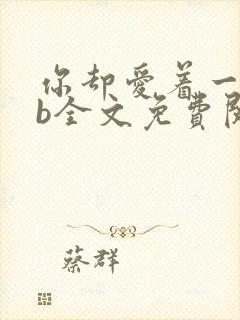 你却爱着一
b全文免费
蔡群